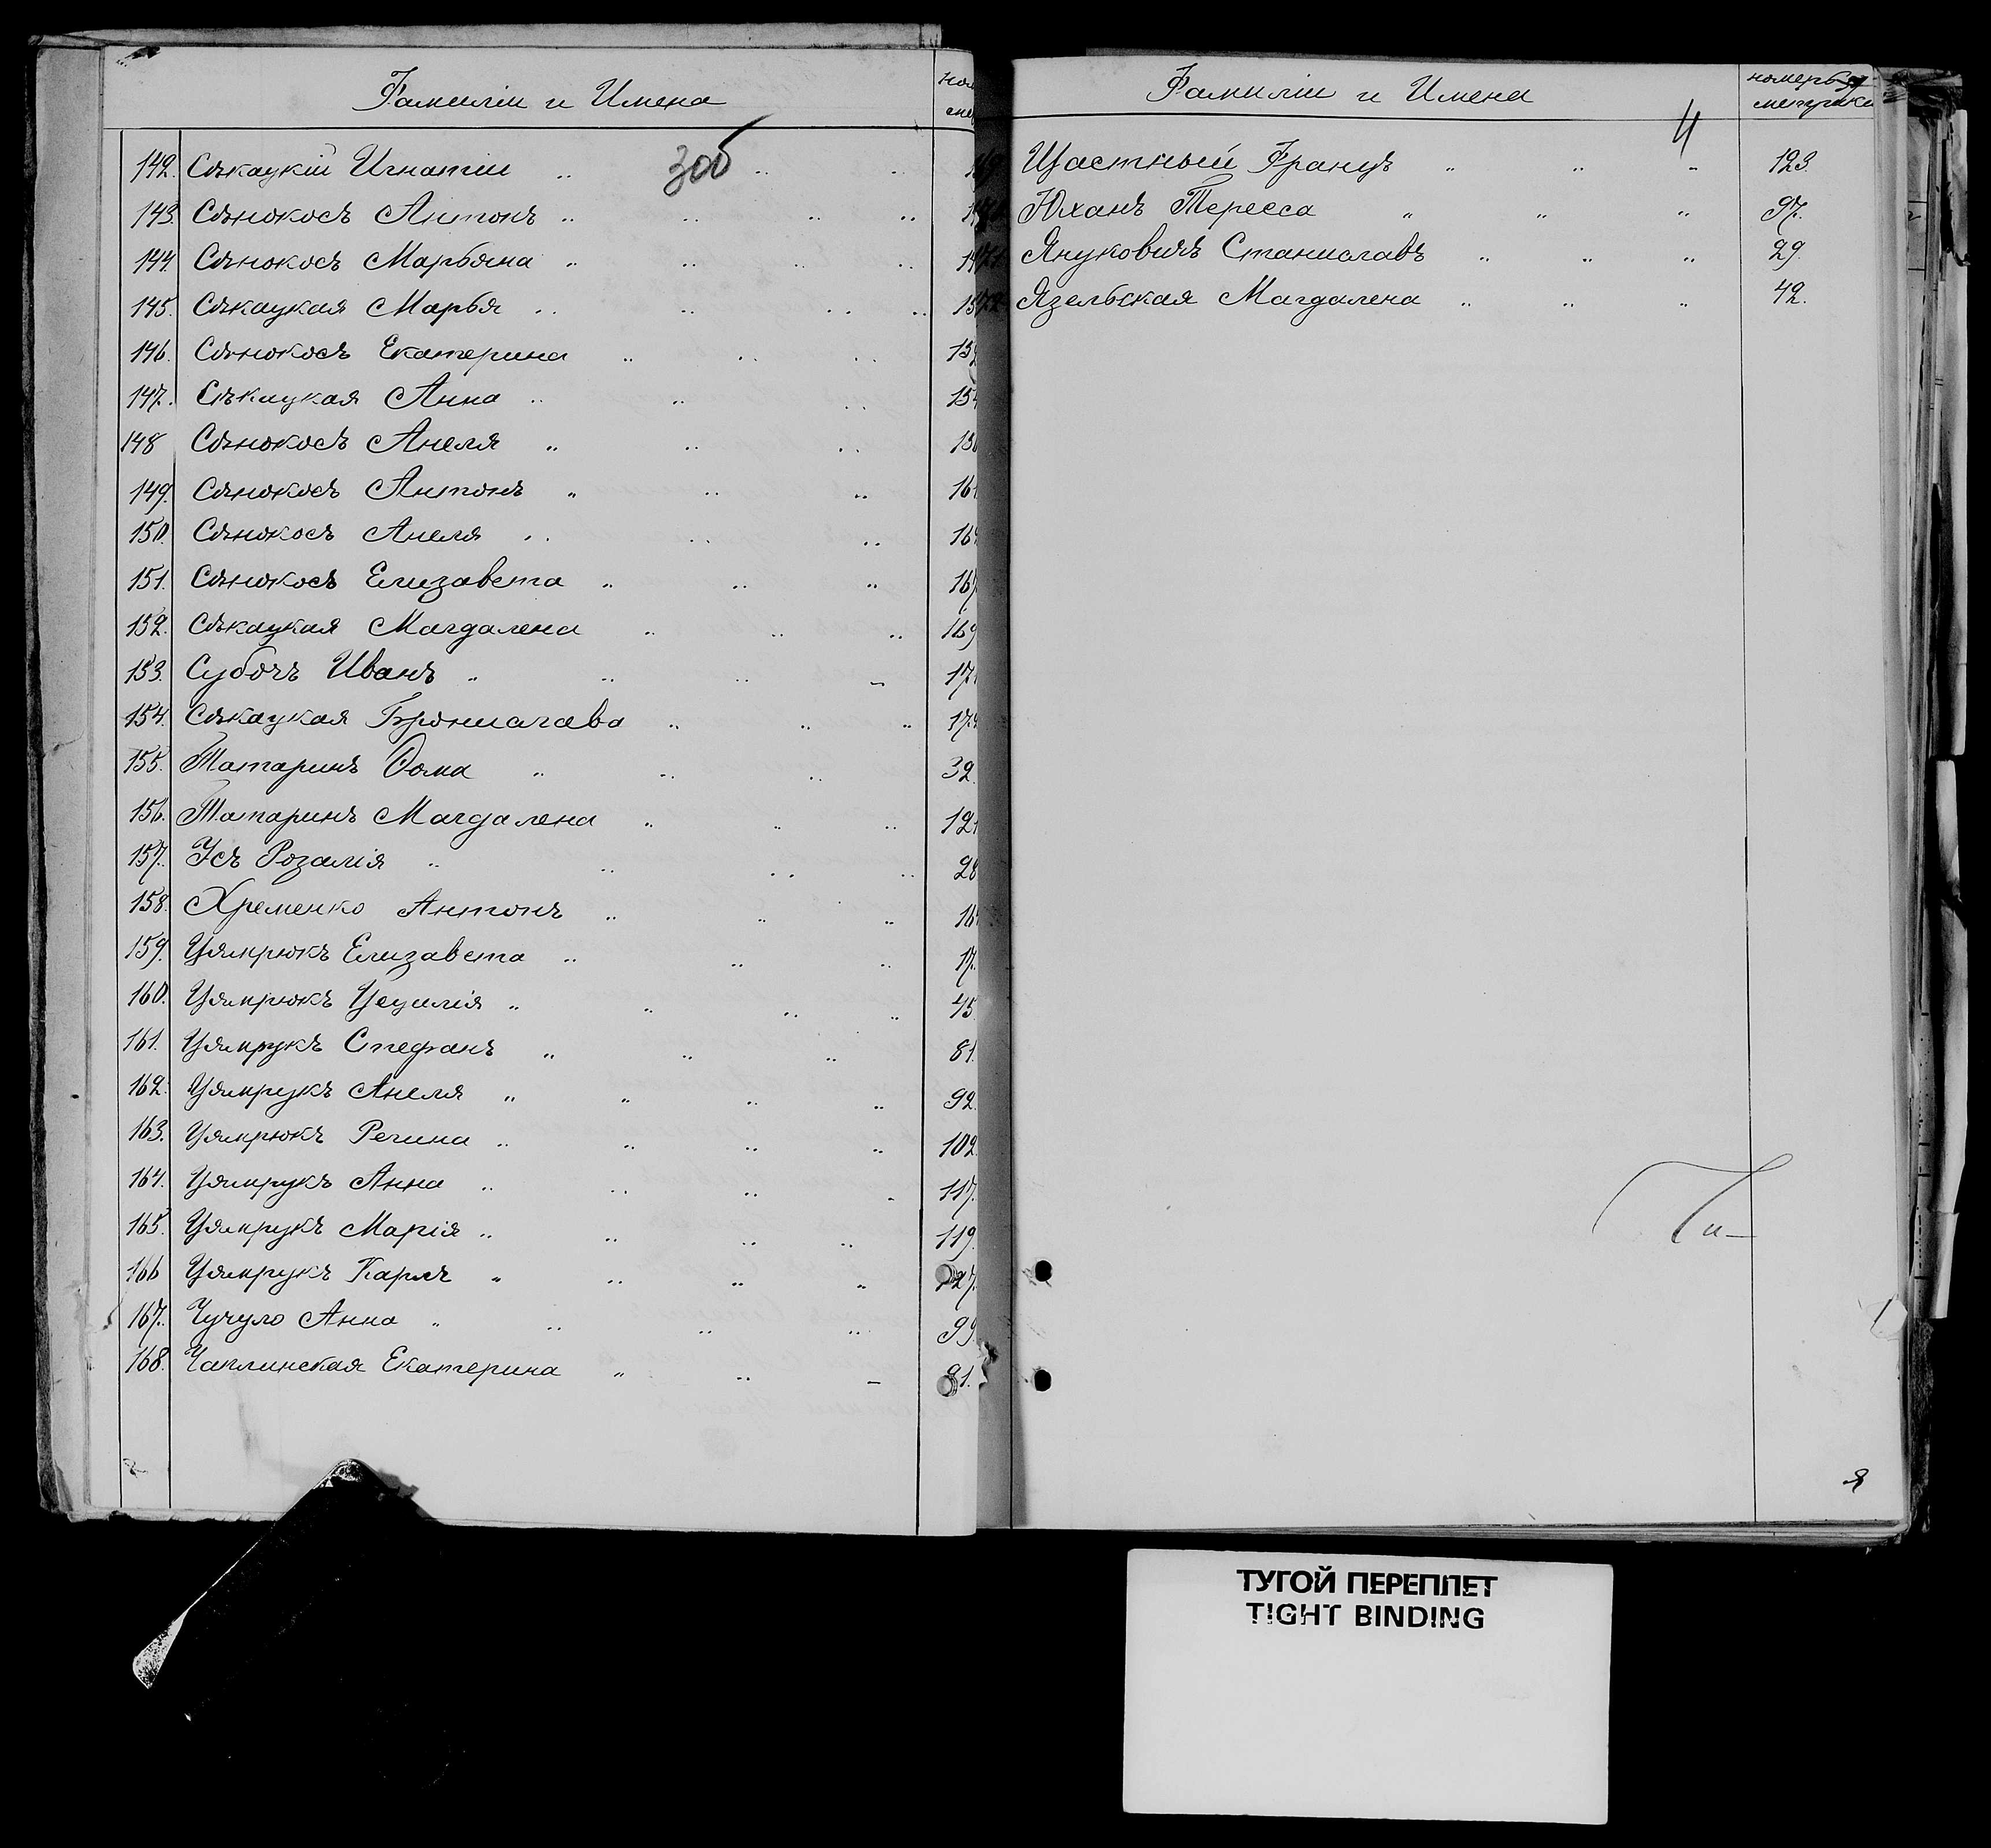 Фамиліи и Имена
142. Сѣкацкій Игнатій
143. Сѣнокосъ Антонъ
144. Сѣнокосъ Марьяна
145. Сѣкацкая Марья
146. Сѣнокосъ Екатерина
147. Сѣкацкая Анна
148 Сѣнокосъ Анеля
149. Сѣнокосъ Антонъ
150. Сѣнокосъ Анеля
151. Сѣнокосъ Елизавета
152. Сѣкацкая Магдалена 169
153. Субочъ Иванъ
154. Сѣкацкая Брониславa
155. Татаринъ Ѳома 32.
156. Татаринъ Магдалена
157. Усъ Розалія 28
158. Хременко Антонъ
159. Цямрюкъ Елизавета 17.
160. Цямрюкъ Цецилія 45
161. Цямрукъ Стефанъ 81.
162. Цямрукъ Анеля 92.
163. Цямрюкъ Регина 102.
164. Цямрукъ Анна 117.
165. Цямрукъ Марія 119.
166 Цямрукъ Карлъ 127.
167. Чучуло Анна 99
168. Чаплинская Екатерина
Фамиліи и Имена
4
Щастный Францъ 123.
Юханъ Тересса 97.
Януковичъ Станиславъ 29.
Язельская Магдалена 42.
ТУГОЙ ПЕРЕПЛЕТ
TIGHT BINDING